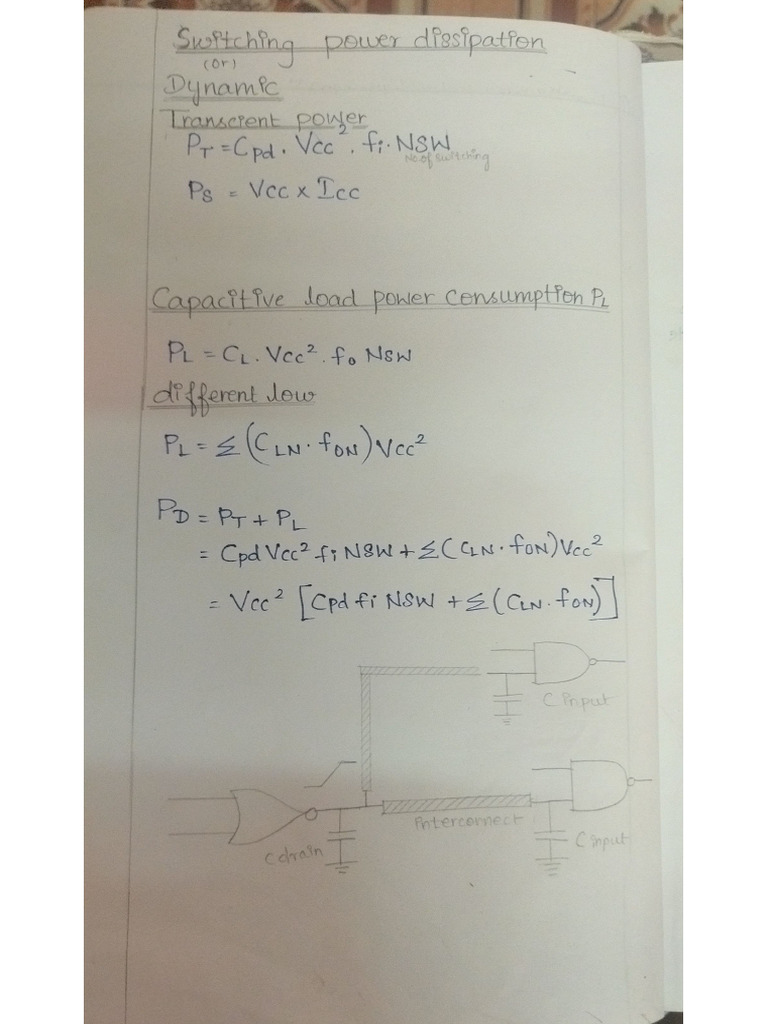 Switching power dissipation
(or)
Dynamic
Transcient power
PT = Cpd . Vcc² . fi . NSW
No of switching
PS = VCC x ICC
Capacitive load power consumption PL
PL = CL . Vcc² . fo NSW
different low
PL = Σ (CLN . fON) VCC²
PD = PT + PL
= Cpd Vcc² fi NSW + Σ (CLN . fON) Vcc²
= Vcc² [Cpd fi NSW + Σ (CLN . fON)]
C input
interconnect
C drain
C input